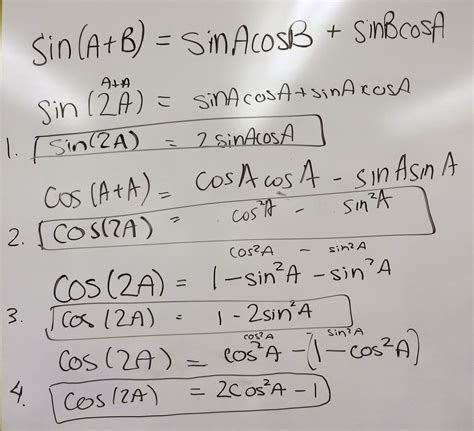 Sin(A+B) = sinAcosB + sinBcosA
A+A
Sin (2A) = sinAcosA+sinAxcosA
1. Sin(2A) = 2sinAcosA
Cos (A+A) = CosAcosA - sinAsinA
2. COS(2A) = cos²A - sin²A
cos²A - sin²A
Cos(2A) = 1-sin²A -sin²A
3. Cos (2A) = 1 - 2sin²A
cos²A sin²A
Cos(2A) = cos²A -(1-cos²A)
4. Cos(2A) = 2cos²A -1